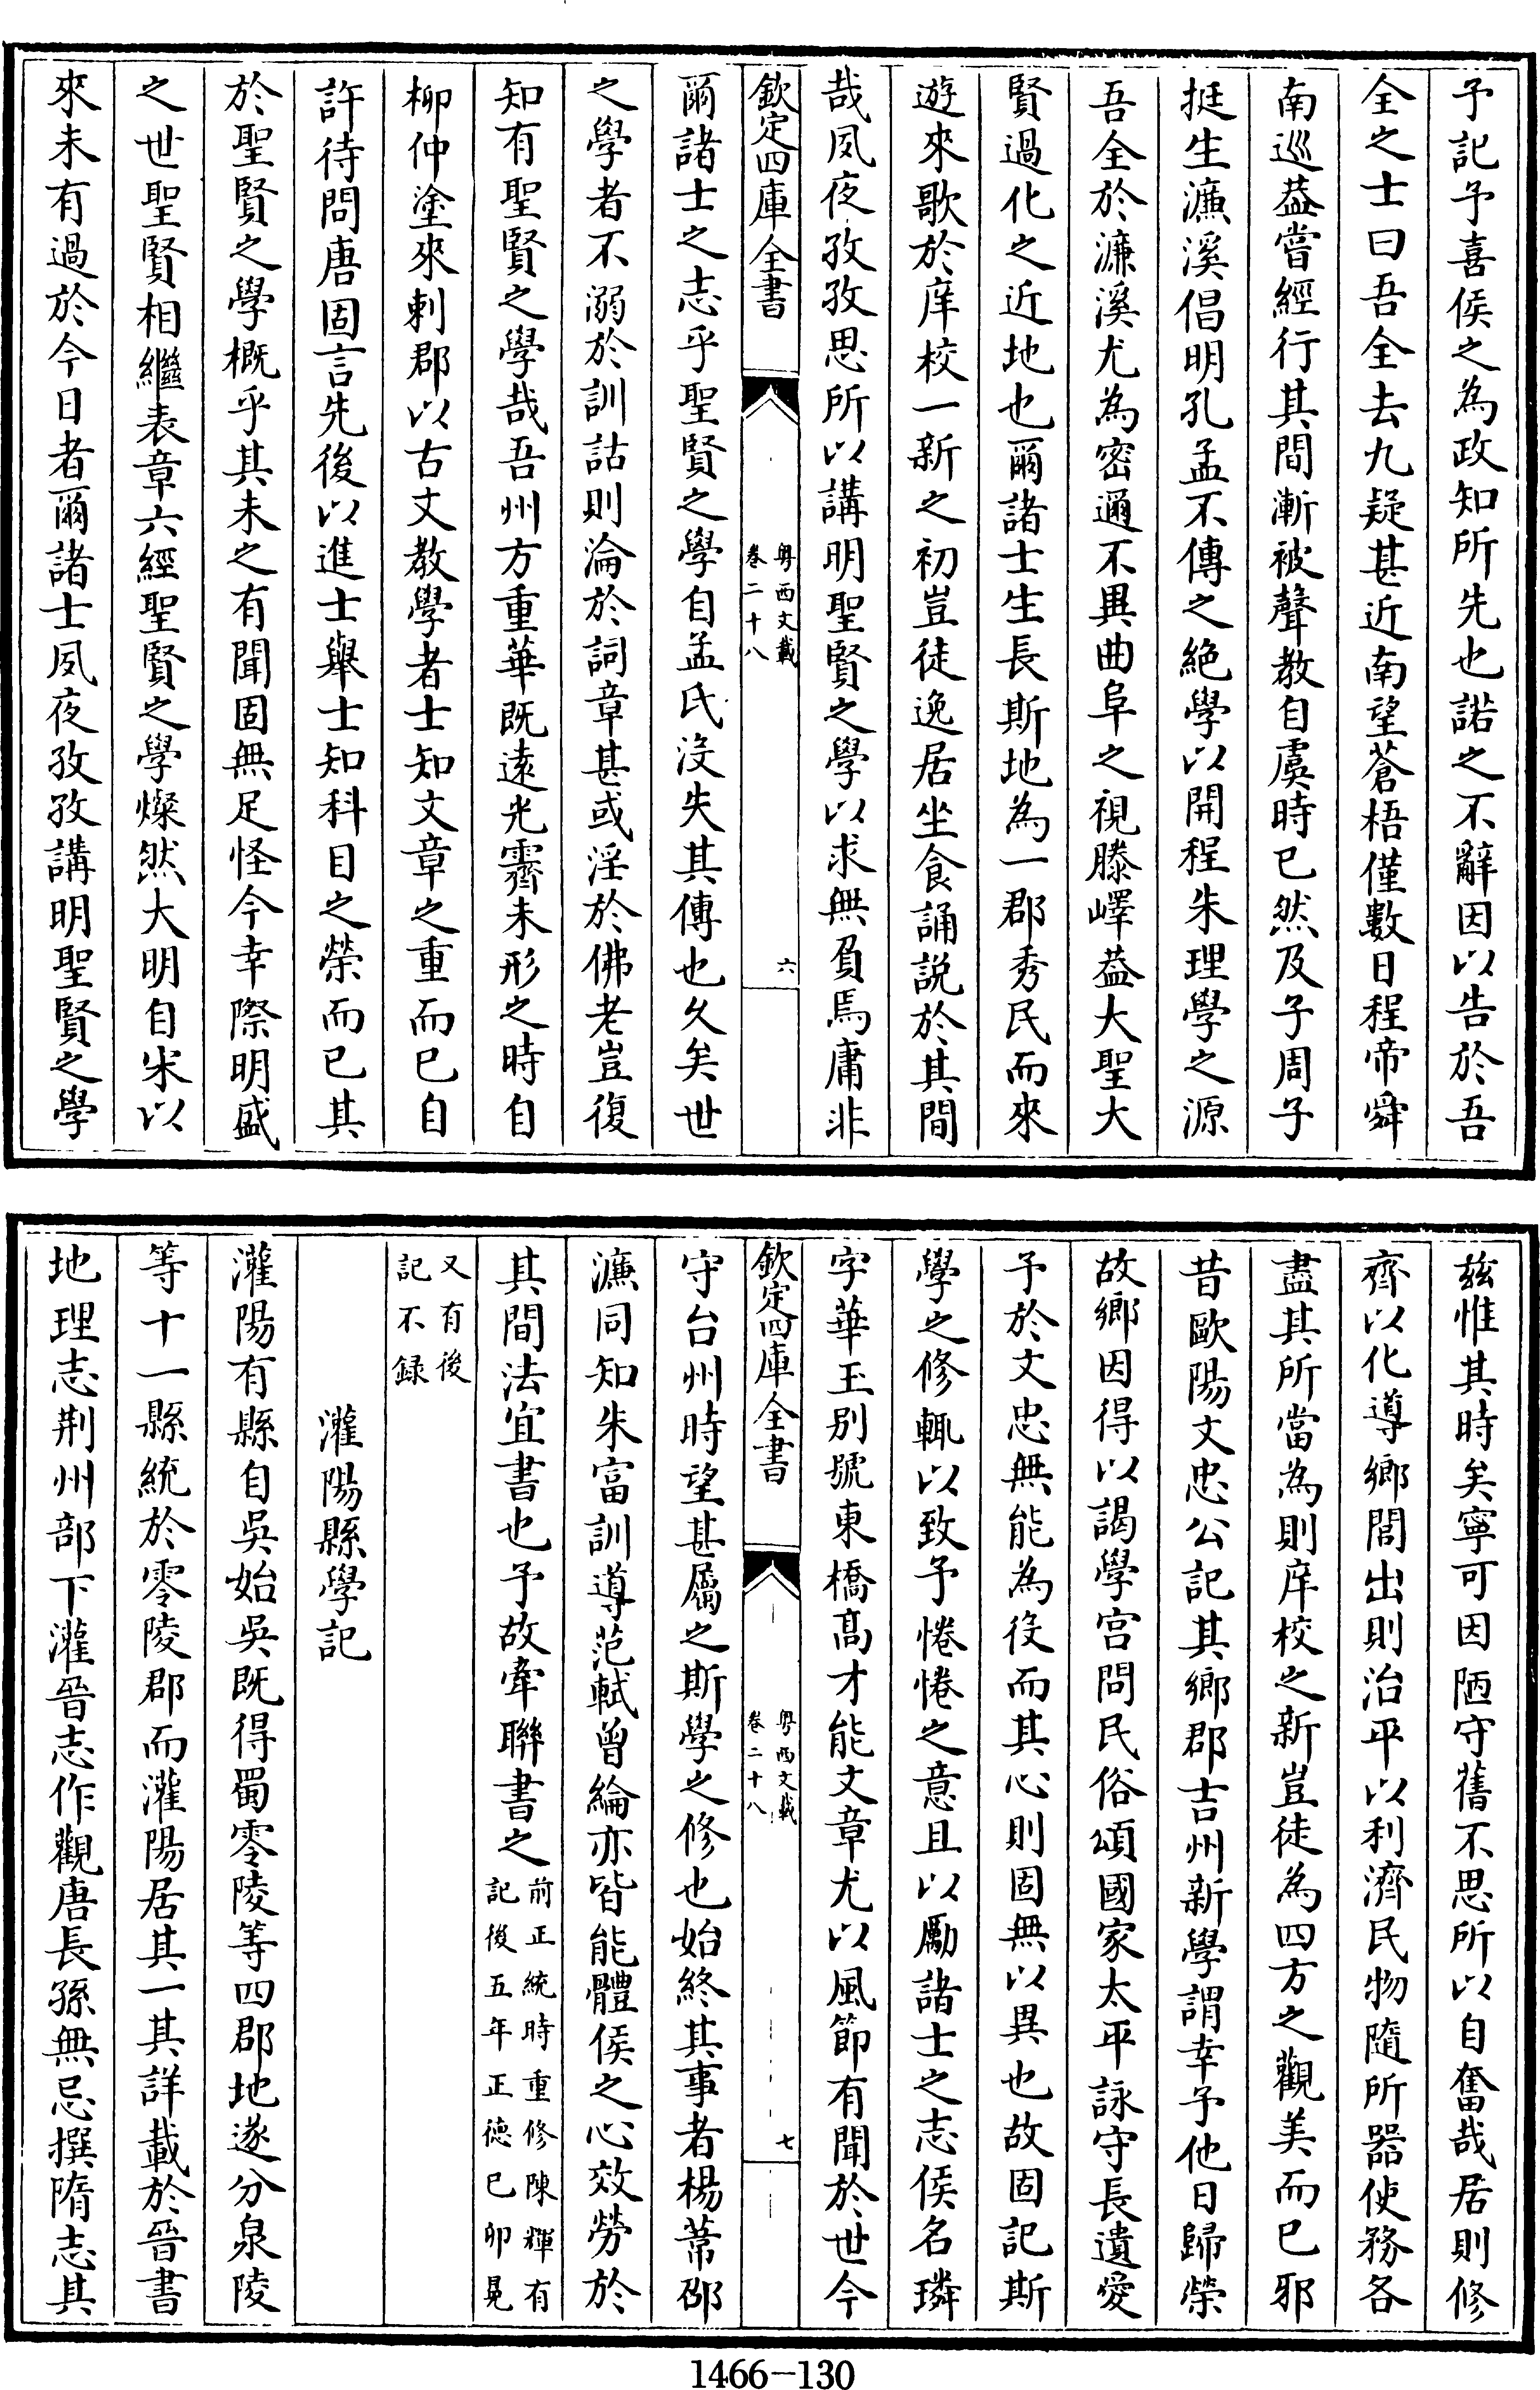 予記予喜侯之為政知所先也諾之不辭因以告於吾
全之士曰吾全去九疑甚近南望蒼梧僅數日程帝舜
南巡葢嘗經行其間漸被聲教自虞時已然及子周子
挺生濂溪倡明孔孟不傳之絶學以開程朱理學之源
吾全於濂溪尤為密邇不異曲阜之視滕嶧葢大聖大
賢過化之近地也爾諸士生長斯地為一郡秀民而來
遊來歌於庠校一新之初豈徒逸居坐食誦説於其間
哉夙夜孜孜思所以講明聖賢之學以求無負焉庸非
欽定四庫全書
粤西文載
卷二十八
六
爾諸士之志乎聖賢之學自孟氏沒失其傳也久矣世
之學者不溺於訓詁則淪於詞章甚或淫於佛老豈復
知有聖賢之學哉吾州方重華既逺光霽未形之時自
柳仲塗來刺郡以古文教學者士知文章之重而已自
許待問唐固言先後以進士舉士知科目之榮而已其
於聖賢之學概乎其未之有聞固無足怪今幸際明盛
之世聖賢相繼表章六經聖賢之學燦然大明自宋以
來未有過於今日者爾諸士夙夜孜孜講明聖賢之學
兹惟其時矣寧可因陋守舊不思所以自奮哉居則修
齊以化導鄉閭出則治平以利濟民物隨所器使務各
盡其所當為則庠校之新豈徒為四方之觀美而已邪
昔歐陽文忠公記其鄉郡吉州新學謂幸予他日歸榮
故鄉因得以謁學宮問民俗頌國家太平詠守長遺愛
予於文忠無能為役而其心則固無以異也故因記斯
學之修輒以致予惓惓之意且以勵諸士之志侯名璘
字華玉别號東橋髙才能文章尤以風節有聞於世今
欽定四庫全書
粤西文載
卷二十八
七
守台州時望甚屬之斯學之修也始終其事者楊芾邵
濂同知朱富訓導范軾曾綸亦皆能體侯之心效勞於
其間法宜書也予故牽聯書之前正統時重修陳輝有
記後五年正德已卯晃
又有後
記不録
灌陽縣學記
灌陽有縣自吳始吳既得蜀零陵等四郡地遂分泉陵
等十一縣統於零陵郡而灌陽居其一其詳載於晉書
地理志荆州部下灌晉志作觀唐長孫無忌撰隋志其
1466-130